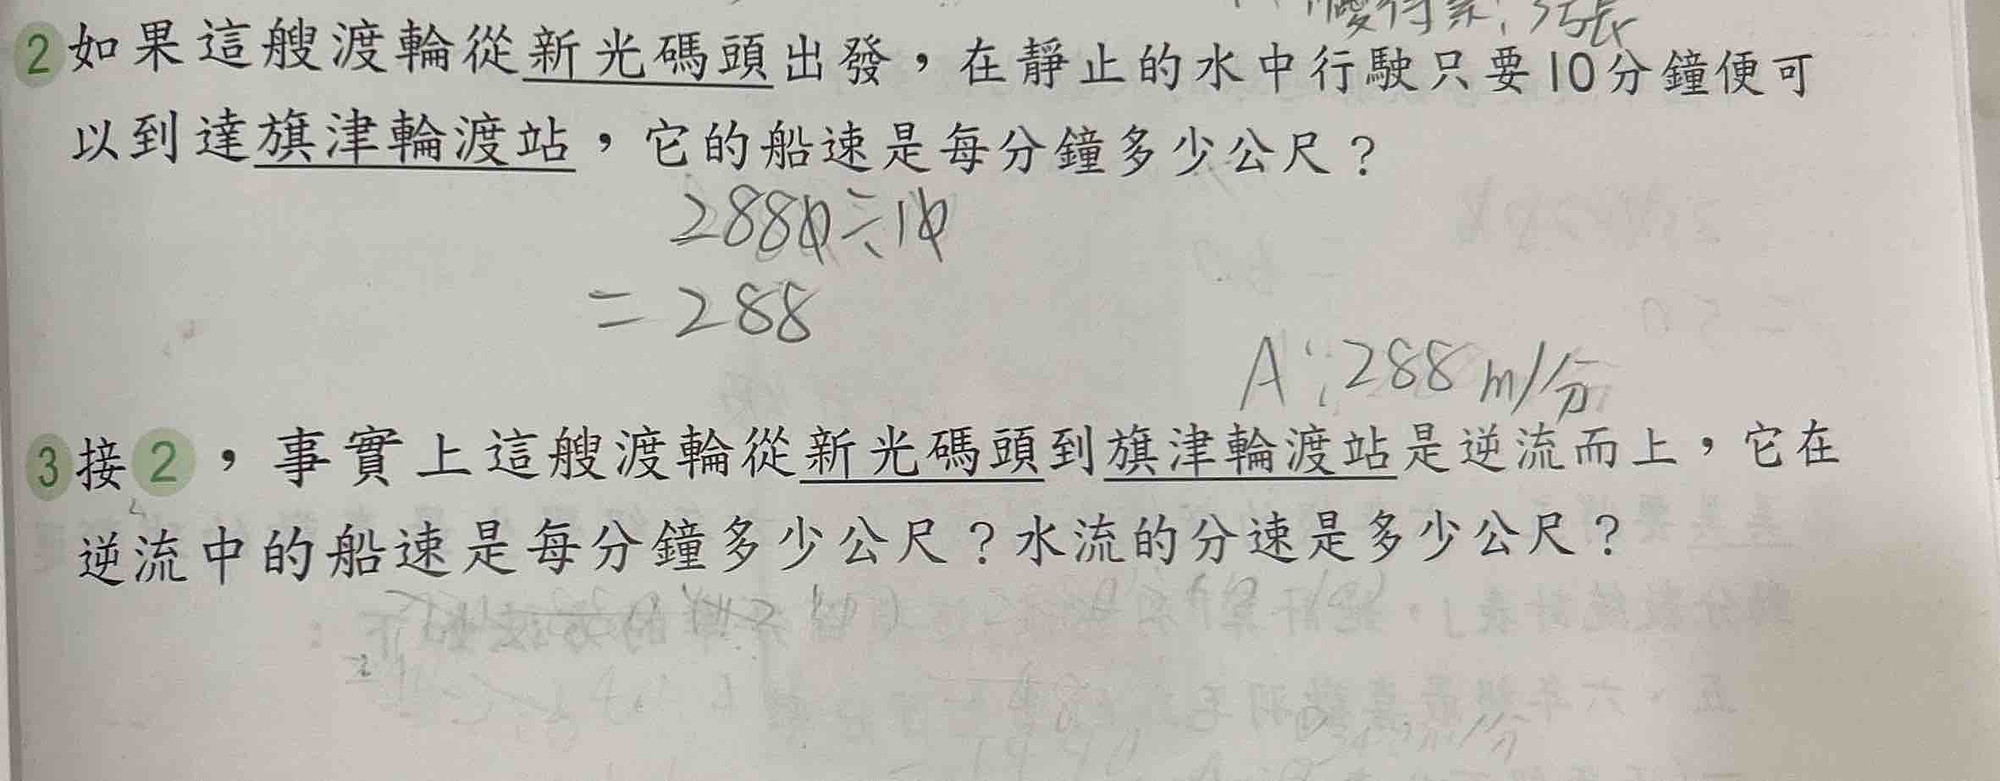 2如果這艘渡輪從新光碼頭出發，在靜止的水中行駛只要10分鐘便可
以到達旗津輪渡站，它的船速是每分鐘多少公尺？
2880÷10
=288
A:288m/分
3接2，事實上這艘渡輪從新光碼頭到旗津輪渡站是逆流而上，它在
逆流中的船速是每分鐘多少公尺？水流的分速是多少公尺？